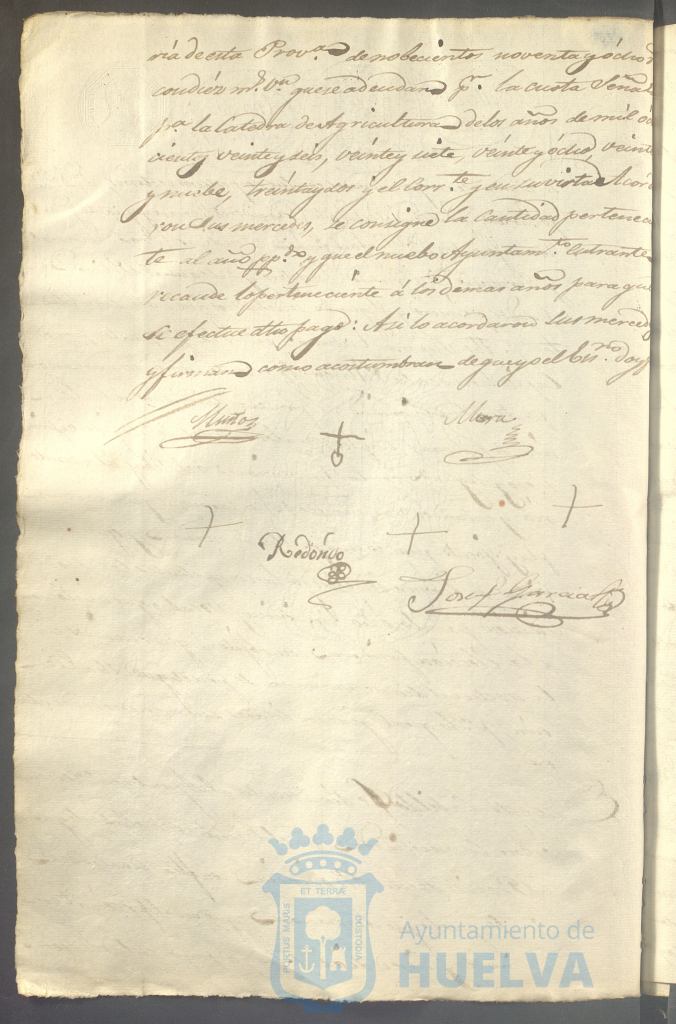 ría de esta Prov.ª de nobecientos noventa y ócho r
con diéz mrs. vn. que se adeudan pr. la cuota Señal
pa. la Catedra de Agricultura de los años de mil óc
cientos veinte y seis, veinte y siete, veinte y ócho, veinte
y nuebe, treinta y dos y el Corr.te y en su virtud Acord
ron Sus mercedes, se consigne la Cantidad pertenec
te al año pp.do y que el nuebo Ayuntam.to Entrante
recaude lo perteneciente á los demas años para que
se efectue dho pago: Asi lo acordaron Sus mercedes
y firman como acostumbran de que yo el Ess.no doy f
Muñoz
Mora
Redondo
Josef Garcia
PORTUS MARIS
ET TERRÆ
CUSTODIA
Ayuntamiento de
HUELVA